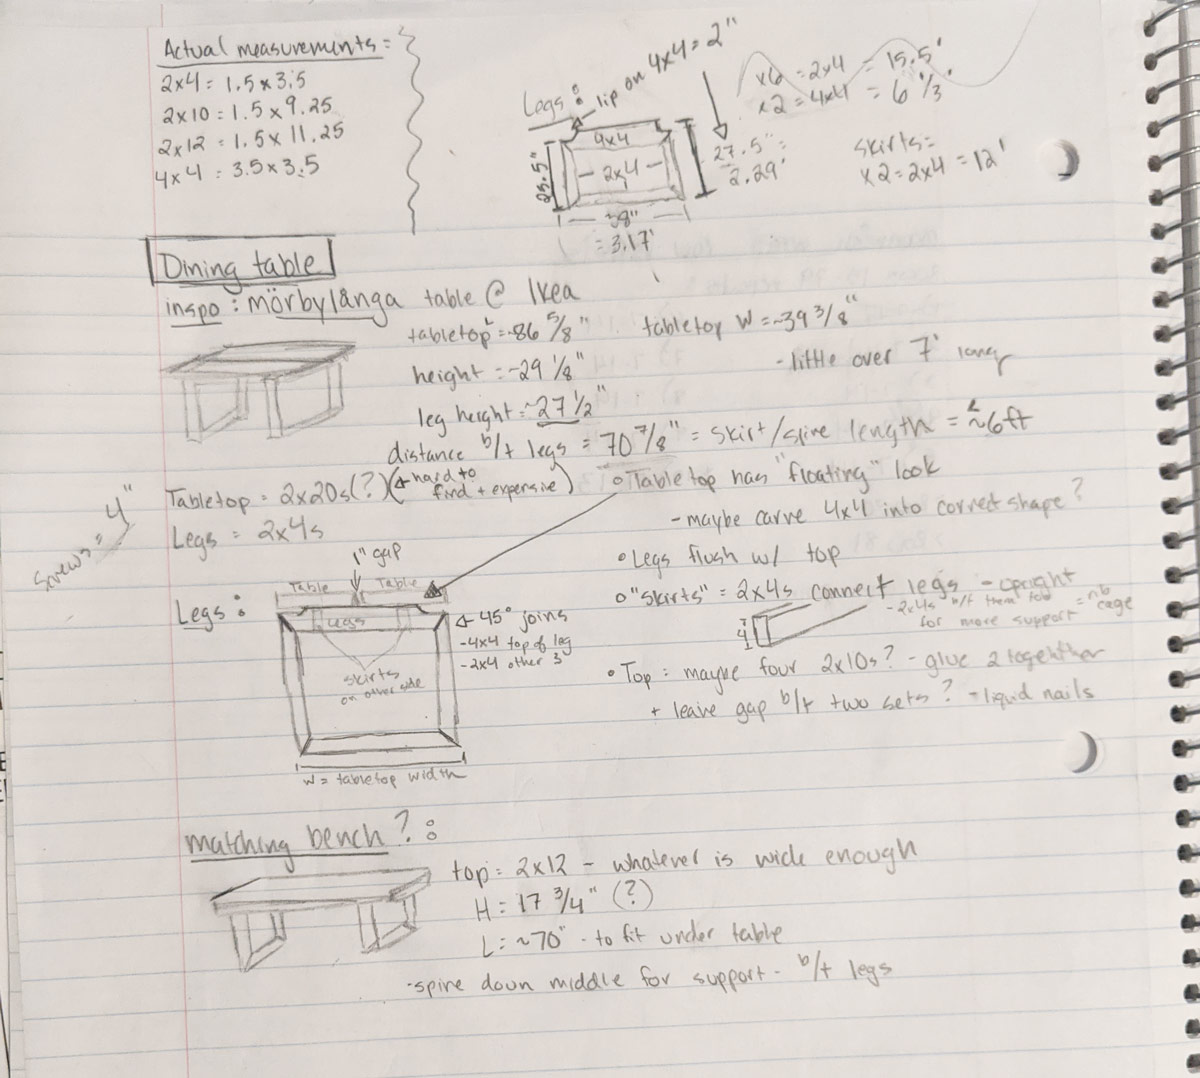 Actual measurements =
2x4 = 1.5 x 3.5
2x10 = 1.5 x 9.25
2x12 = 1.5 x 11.25
4x4 = 3.5 x 3.5
Legs:
lip on 4x4 = 2"
4x4
- 2x4 -
25.5"
27.5" =
2.29'
38"
= 3.17'
x6 = 2x4 = 15.5'
x2 = 4x4 = 6 1/3'
skirts =
x2 = 2x4 = 12'
Dining table
inspo: mörbylånga table @ Ikea
tabletop L = ~86 5/8"
tabletop W = ~39 3/8"
- little over 7' long
height = ~29 1/8"
leg height = ~27 1/2"
distance b/t legs = 70 7/8" = skirt/spine length = ~6ft
Tabletop = 2x20s(?) (hard to
find + expensive)
Legs = 2x4s
screws = 4"
Tabletop has "floating" look
- maybe carve 4x4 into correct shape?
Legs flush w/ top
"skirts" = 2x4s connect legs - upright
- 2x4s b/t them too
for more support = rib
cage
4"
Top: maybe four 2x10s? - glue 2 togehther
+ leave gap b/t two sets? - liquid nails
Legs:
1" gap
Table
Table
Legs
skirts
on other side
45° joins
- 4x4 top of leg
- 2x4 other 3
W = tabletop width
matching bench?:
top: 2x12 - whatever is wide enough
H = 17 3/4" (?)
L = ~70" - to fit under table
- spine down middle for support - b/t legs